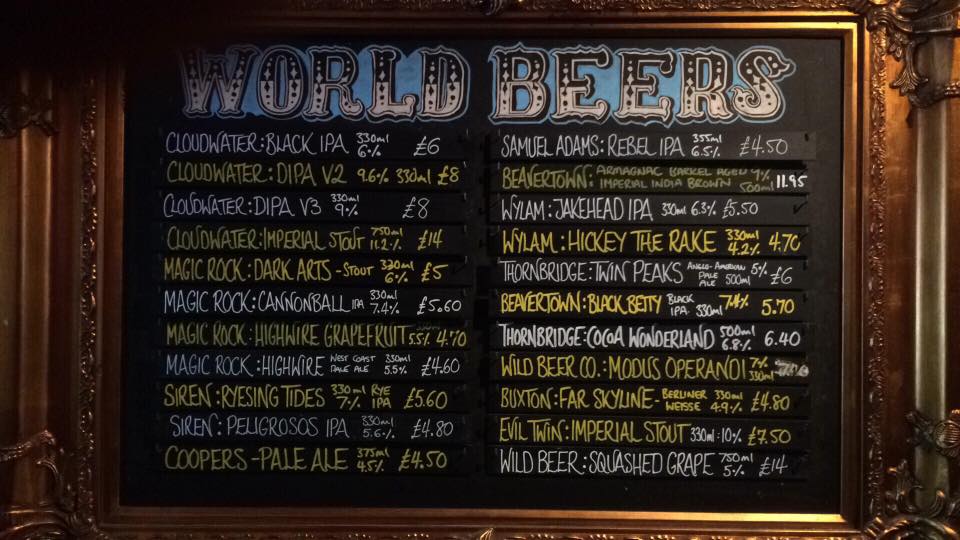 WORLD BEERS
CLOUDWATER: BLACK IPA 330ml 6.% £6
CLOUDWATER: DIPA V2 9.6% 330ml £8
CLOUDWATER: DIPA V3 330ml 9.% £8
CLOUDWATER: IMPERIAL STOUT 750ml 11.2.% £14
MAGIC ROCK: DARK ARTS - STOUT 330ml 6% £5
MAGIC ROCK: CANNONBALL IPA 330ml 7.4% £5.60
MAGIC ROCK: HIGHWIRE GRAPEFRUIT 5.5% 4.70
MAGIC ROCK: HIGHWIRE WEST COAST PALE ALE 330ml 5.5% £4.60
SIREN: RYESING TIDES 330ml 7% RYE IPA £5.60
SIREN: PELIGROSOS IPA 330ml 5.6% £4.80
COOPERS - PALE ALE 375ml 4.5% £4.50
SAMUEL ADAMS: REBEL IPA 355ml 6.5% £4.50
BEAVERTOWN: ARMAGNAC BARREL AGED IMPERIAL INDIA BROWN 9% 500ml 11.95
WYLAM: JAKEHEAD IPA 330ml 6.3% £5.50
WYLAM: HICKEY THE RAKE 330ml 4.2% 4.70
THORNBRIDGE: TWIN PEAKS ANGLO-AMERICAN PALE ALE 5% 500ml £6
BEAVERTOWN: BLACK BETTY BLACK IPA 330ml 7.4% 5.70
THORNBRIDGE: COCOA WONDERLAND 500ml 6.8% 6.40
WILD BEER CO.: MODUS OPERANDI 7% 330ml
BUXTON: FAR SKYLINE - BERLINER WEISSE 330ml 4.9% £4.80
EVIL TWIN: IMPERIAL STOUT 330ml: 10% £7.50
WILD BEER: SQUASHED GRAPE 750ml 5.% £14